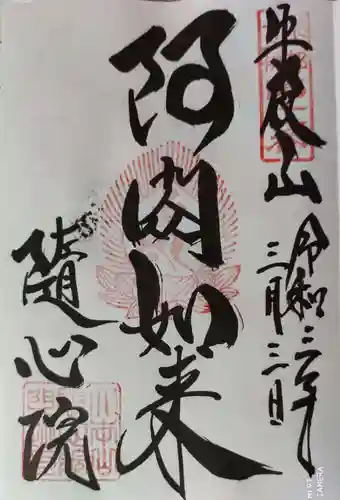 牛皮山
令和三年
三月三日
阿閦如来
随心院
小野
MI 9 SE
CAMERA